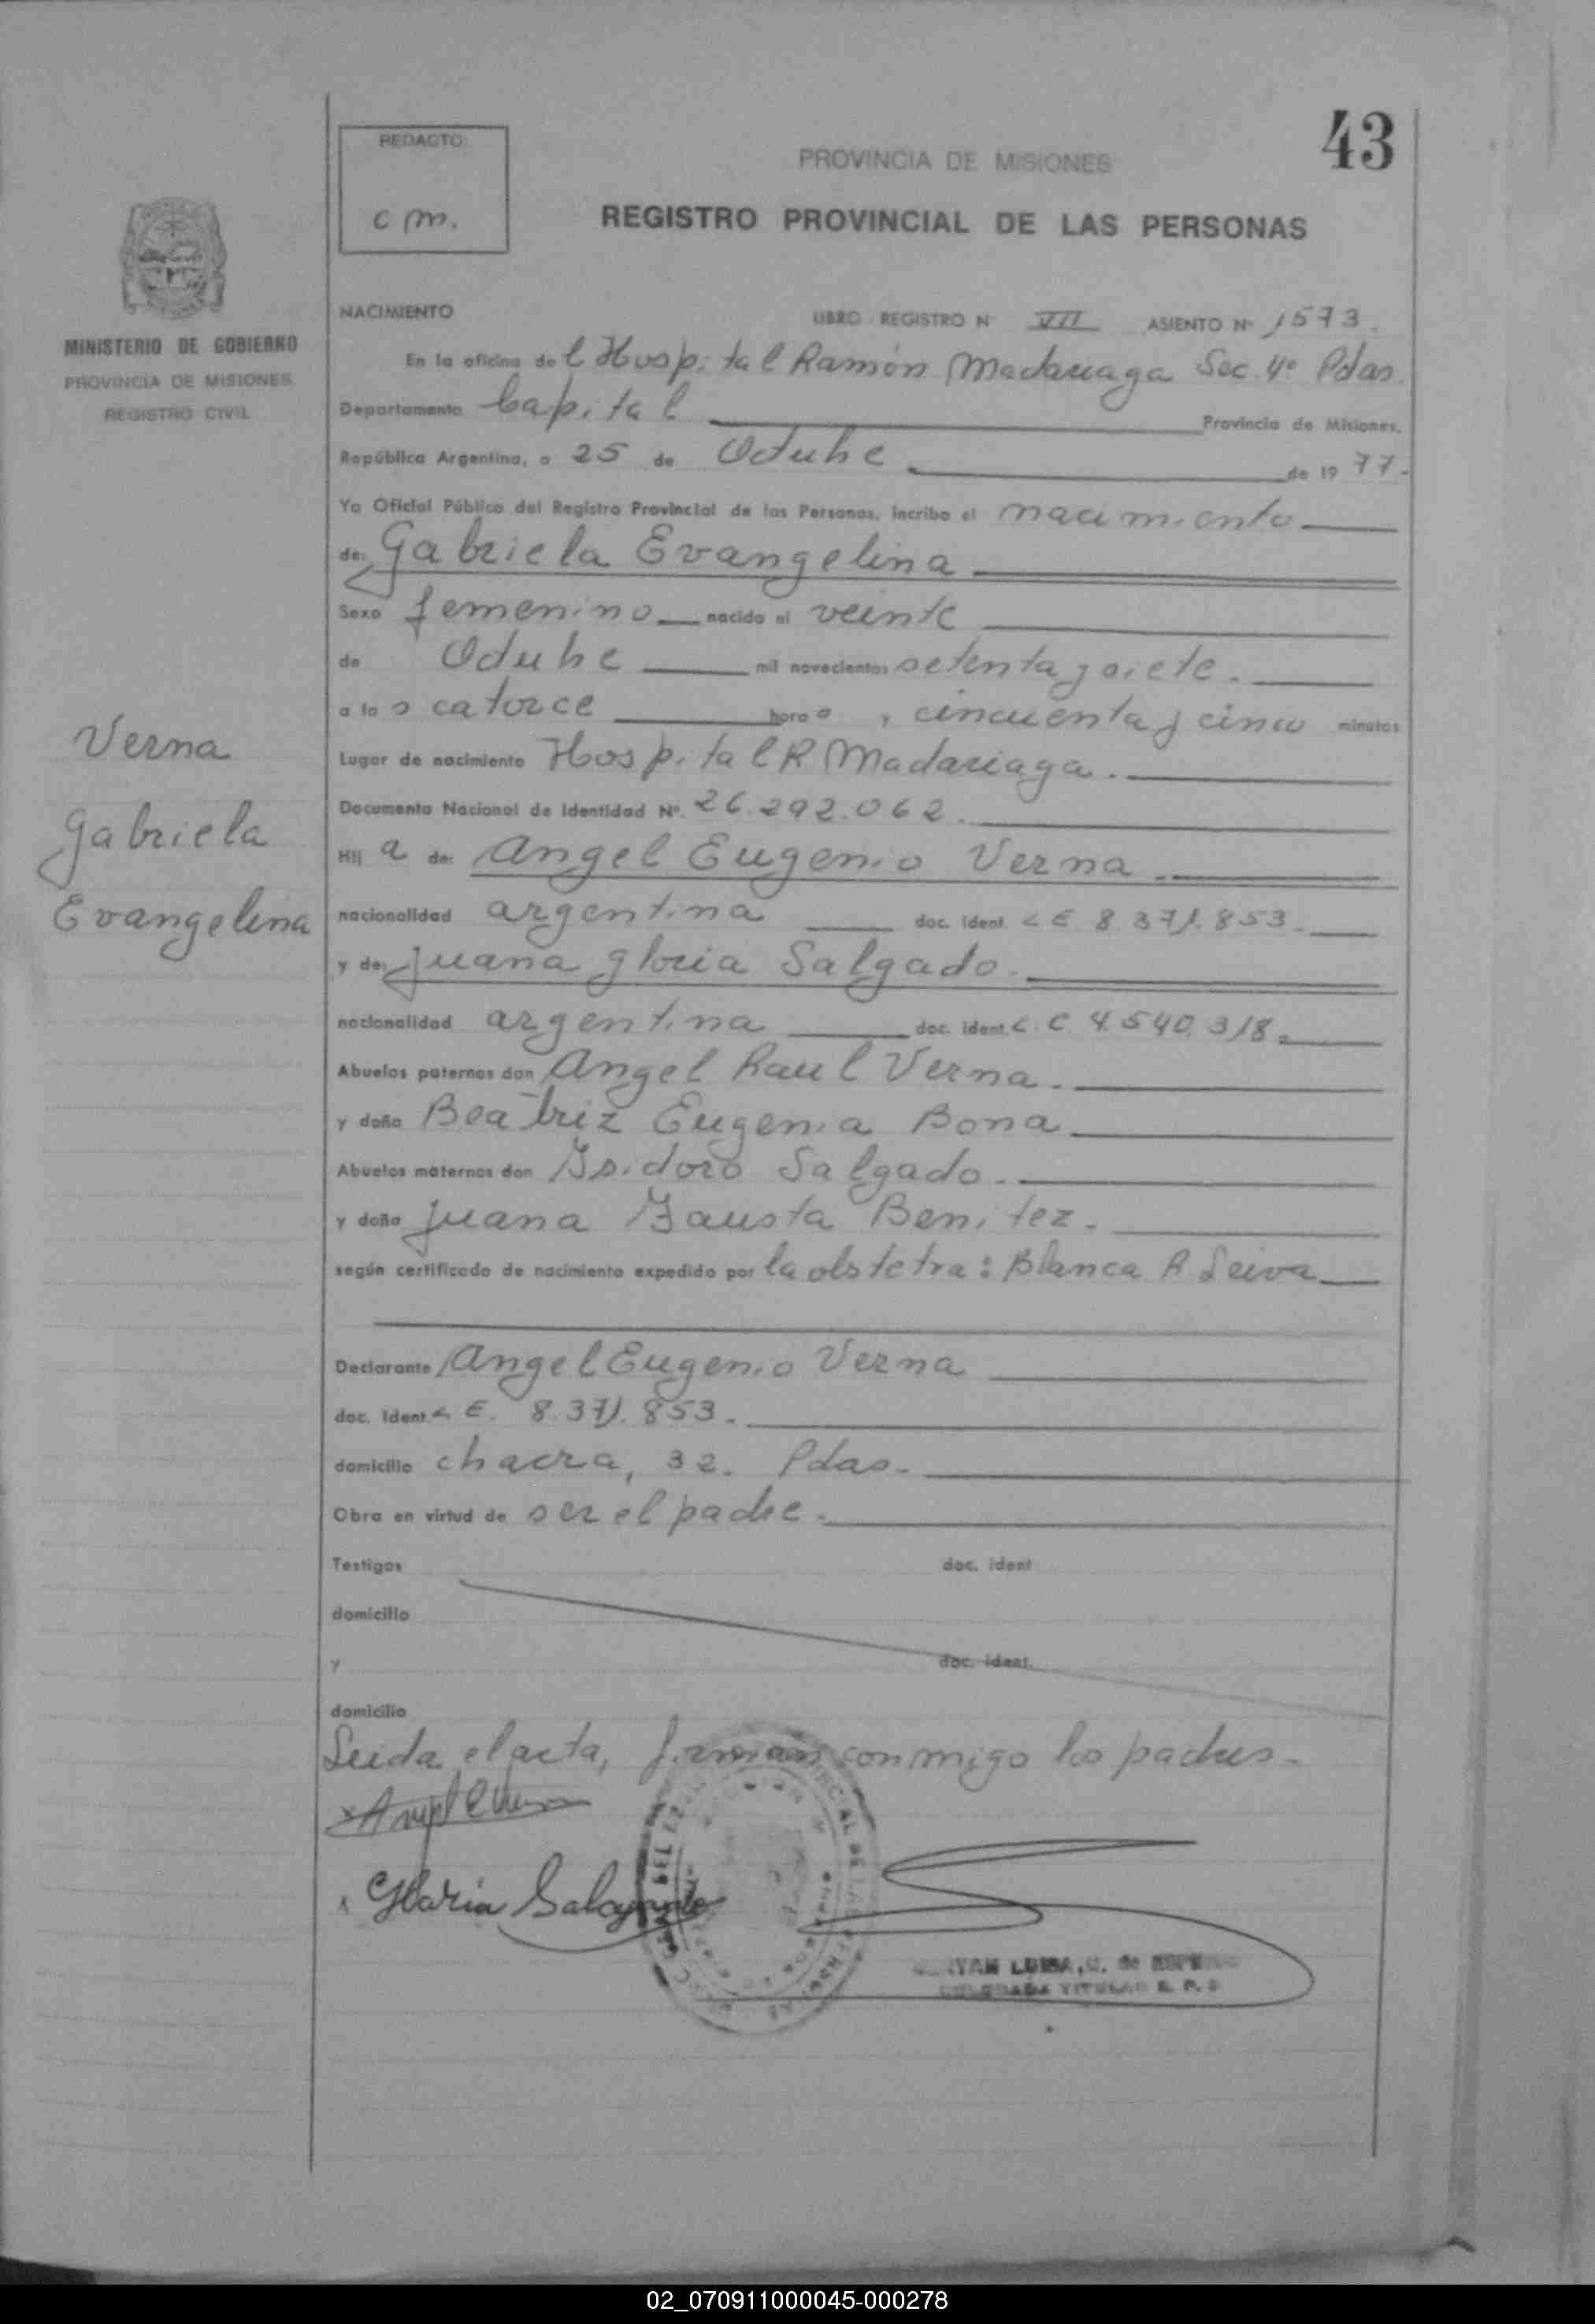 43
REDACTO:
c m.
PROVINCIA DE MISIONES
REGISTRO PROVINCIAL DE LAS PERSONAS
MINISTERIO DE GOBIERNO
PROVINCIA DE MISIONES
REGISTRO CIVIL
NACIMIENTO LIBRO REGISTRO Nº VII ASIENTO Nº 1573.
En la oficina del Hospital Ramón Madariaga Sec. 4º Pdas.
Departamento Capital Provincia de Misiones,
República Argentina, a 25 de Octubre de 1977.
Yo Oficial Público del Registro Provincial de las Personas, incribo el nacimiento
de: Gabriela Evangelina
Sexo femenino nacido el veinte
de Octubre mil novecientos setenta y siete.
a las catorce horas, cincuenta y cinco minutos
Lugar de nacimiento Hospital R. Madariaga.
Documento Nacional de Identidad Nº. 26.292.062.
Hija de: Angel Eugenio Verna.
nacionalidad argentina doc. ident. L E 8.371.853.
y de: Juana Gloria Salgado.
nacionalidad argentina doc. ident. L. C. 4.540.318.
Abuelos paternos don Angel Raul Verna.
y doña Beatriz Eugenia Bona
Abuelos maternos don Isidoro Salgado.
y doña Juana Fausta Benitez.
según certificado de nacimiento expedido por la obstetra: Blanca R Leiva
Declarante Angel Eugenio Verna
doc. ident. L E. 8.371.853.
domicilio chacra, 32. Pdas.
Obra en virtud de ser el padre.
Testigos doc. ident
domicilio
y doc. ident.
domicilio
Leida el acta, firman conmigo los padres.
Gloria Salgado
Verna
Gabriela
Evangelina
02_070911000045-000278